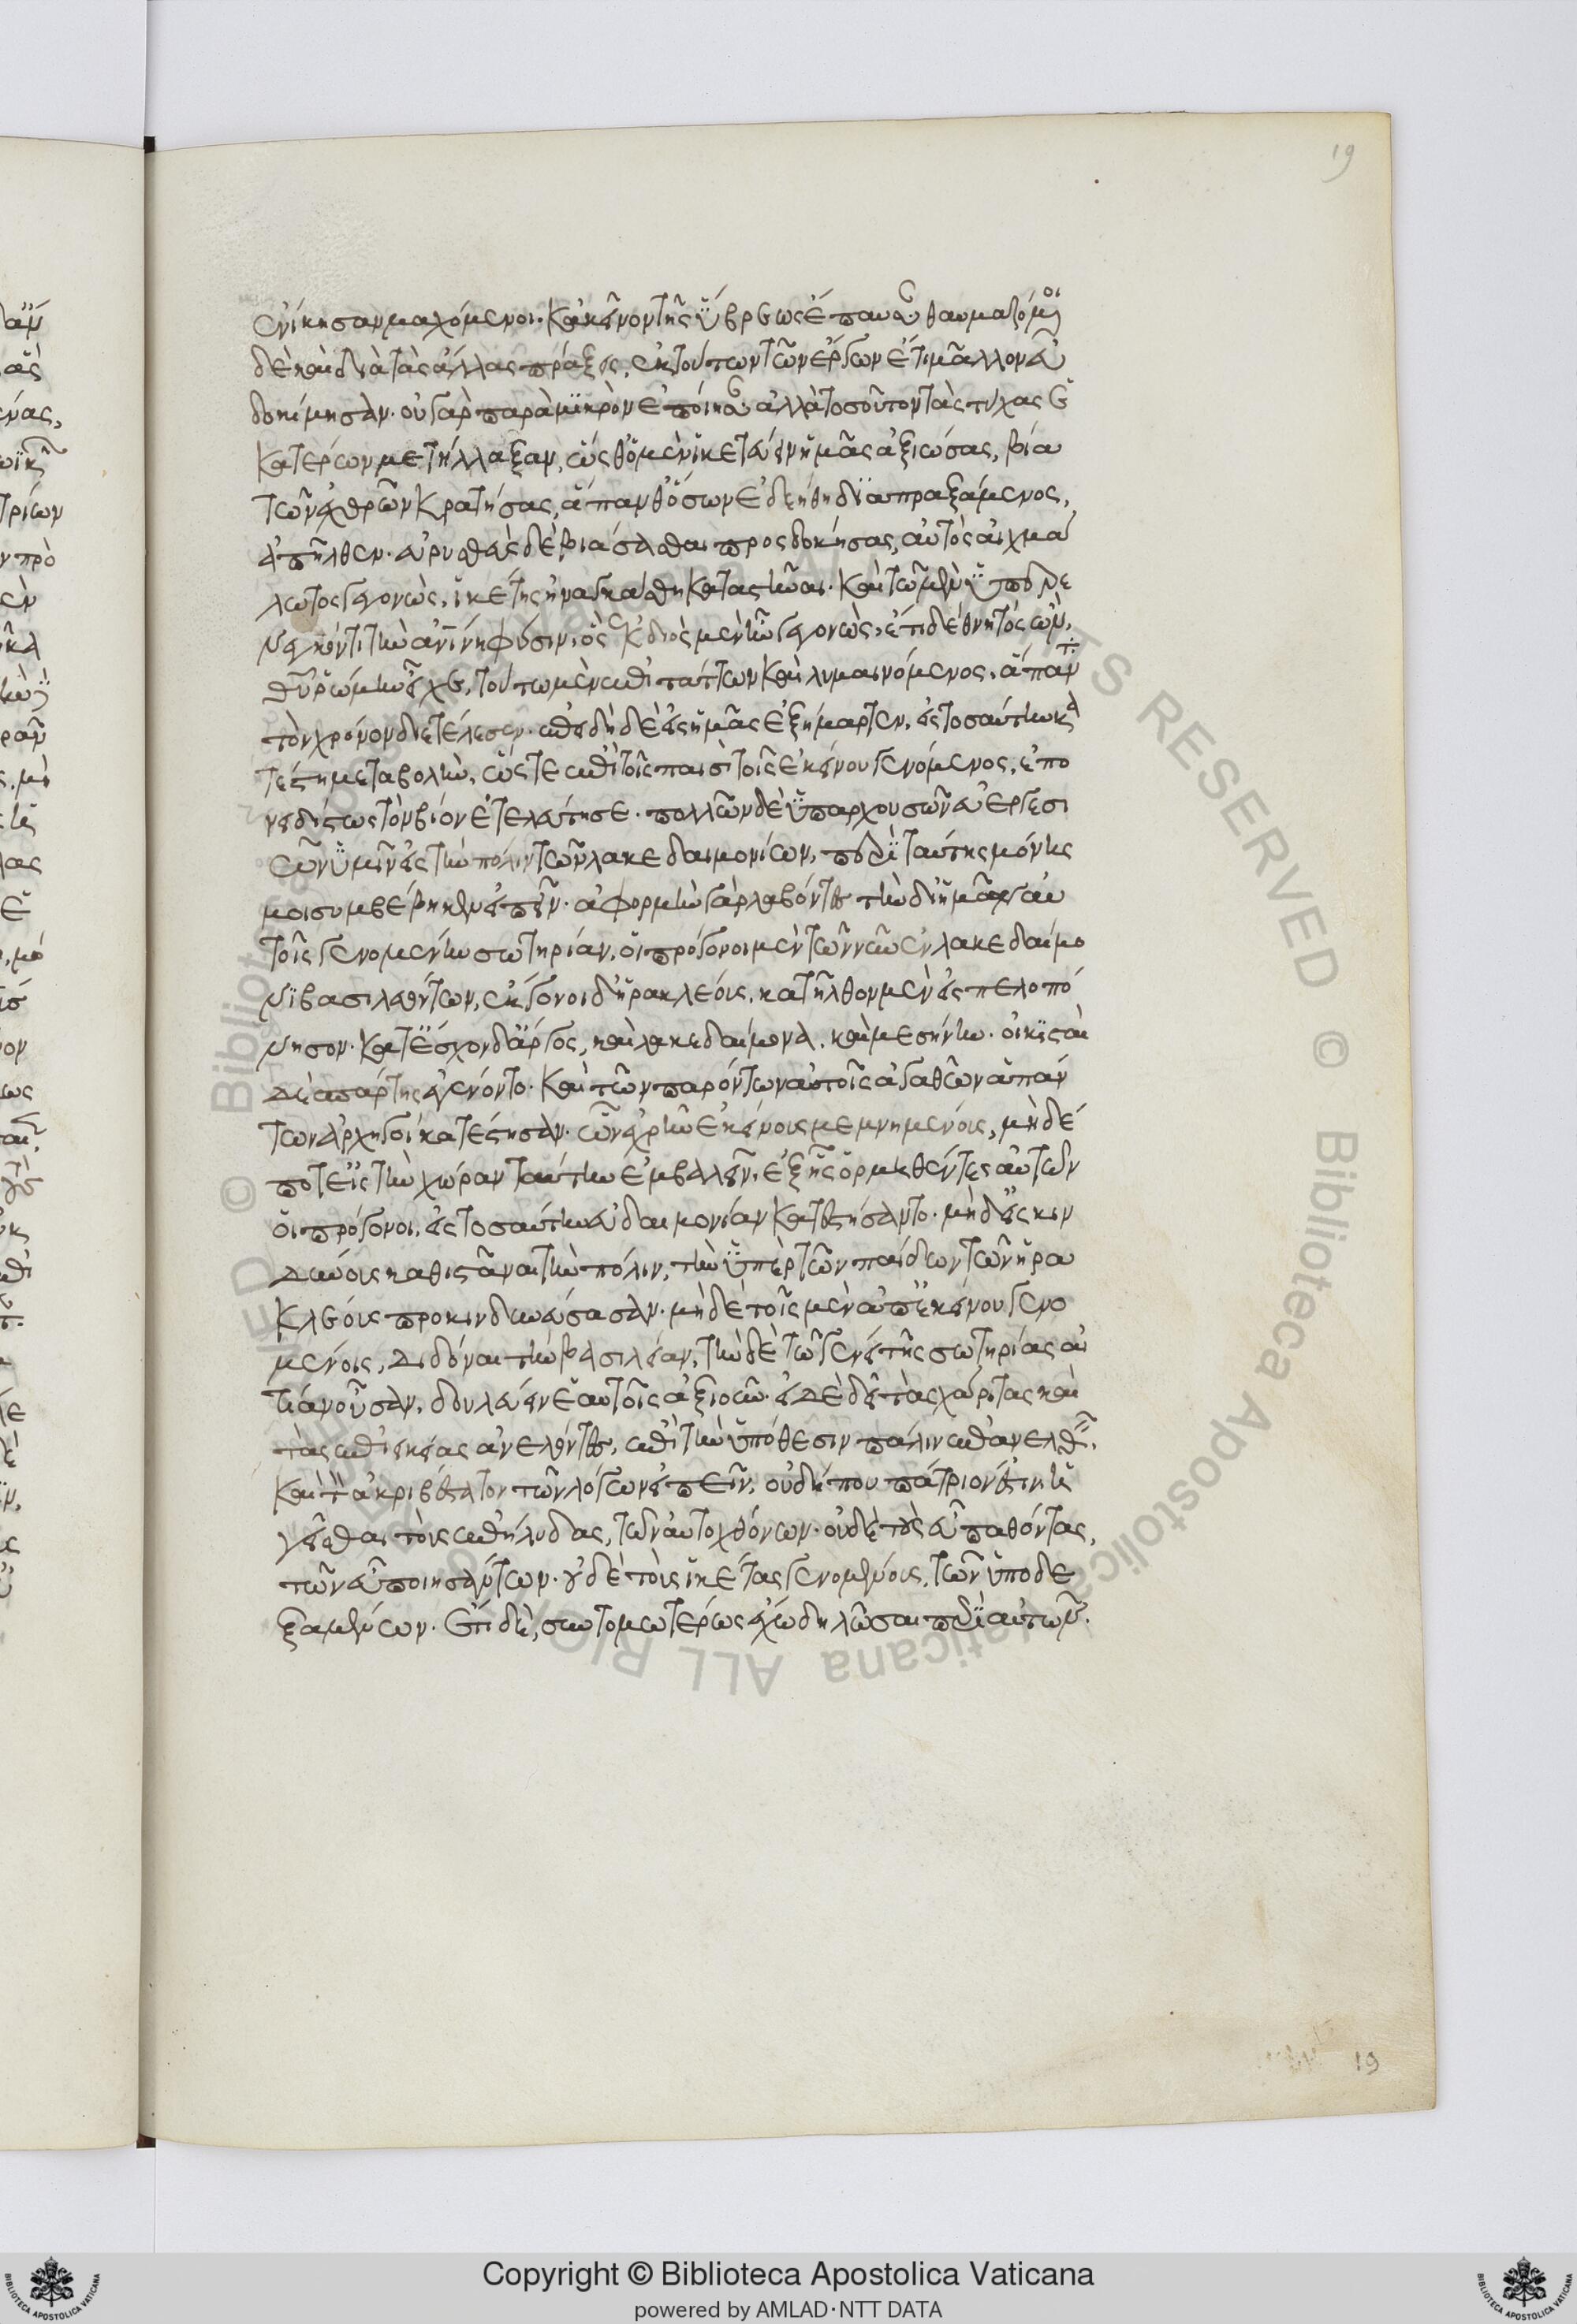 ἐνίκησαν μαχόμενοι· κἀκεῖνον τῆς ὕβρεως ἔπαυσαν· θαυμαζόμενοι
δὲ καὶ διὰ τὰς ἄλλας πράξεις, ἐκ τούτων τῶν ἔργων ἔτι μᾶλλον εὐ
δοκίμησαν· οὐ γὰρ παρὰ μικρὸν ἐποίησαν· ἀλλὰ τοσοῦτον τὰς τύχας ἑ
κατέρων μετήλλαξαν, ὥσθ' ὁ μὲν ἱκετεύειν ἡμᾶς ἀξιώσας, βία
τῶν ἐχθρῶν κρατήσας, ἅπανθ' ὅσων ἐδεήθη διαπραξάμενος,
ἀπῆλθεν· εὐρυσθεὺς δὲ βιάσασθαι προσδοκήσας, αὐτὸς αἰχμά
λωτος γεγονὼς, ἱκέτης ἠναγκάσθη καταστῆναι· καὶ τῷ μὲν ὑπερε
νεγκόντι τὴν ἀνίνην φύσιν, ὃς ἐκ διὸς μὲν ἦν γεγονὼς, ἔτι δὲ θνητὸς ὢν,
θεοῦ ῥώμην εἶχε, τούτω μὲν ἐπιτάττων καὶ λυμαινόμενος, ἅπαντα
τὸν χρόνον διετέλεσεν· ἐπειδὴ δὲ εἰς ἡμᾶς ἐξήμαρτεν, εἰς τοσαύτην κα
τέστη μεταβολὴν, ὥστε ἐπὶ τοῖς παισὶ τοῖς ἐκείνου γενόμενος, ἐπο
νειδίστως τὸν βίον ἐτελεύτησε· πολλῶν δὲ ὑπαρχουσῶν εὐεργεσι
ῶν ὑμῖν εἰς τὴν πόλιν τῶν λακεδαιμονίων, περὶ ταύτης μόνης
μοι συμβέβηκεν εἰπεῖν· ἀφορμὴν γὰρ λαβόντες τὴν δι' ἡμῶν αὐ
τοῖς γενομένην σωτηρίαν, οἱ πρόγονοι μὲν τῶν νῦν ἐν λακεδαίμο
νι βασιλευόντων, ἔκγονοι δ' ἡρακλέους, κατῆλθον μὲν εἰς πελοπό
νησον· κατέσχον δ' ἄργος, καὶ λακεδαίμονα, καὶ μεσήνην· οἰκισταὶ
δὲ σπάρτης ἐγένοντο· καὶ τῶν παρόντων αὐτοῖς ἀγαθῶν ἁπάν
των ἀρχηγοὶ κατέστησαν· ὧν ἐχρῆν ἐκείνους μεμνημένους, μηδέ
ποτε εἰς τὴν χώραν ταύτην ἐμβαλεῖν, ἐξ ἧς ὁρμηθέντες αὐτῶν
οἱ πρόγονοι, εἰς τοσαύτην εὐδαιμονίαν κατέστησαντο· μὴ δ' εἰς κιν
δύνους καθιστᾶναι τὴν πόλιν, τὴν ὑπὲρ τῶν παίδων τῶν ἡρα
κλέους προκινδυνεύσασαν· μηδὲ τοῖς μὲν ἀπ' ἐκείνου γενο
μένοις, διδόναι τὴν βασιλείαν, τὴν δὲ τῶ γένει τῆς σωτηρίας αἰ
τίαν οὖσαν, δουλεύειν ἑαυτοῖς ἀξιοῦν· εἰ δὲ δεῖ τὰς χάριτας καὶ
τὰς ἐπιεικείας ἀνελόντας, ἐπὶ τὴν ὑπόθεσιν πάλιν ἐπανελθεῖν,
καὶ τὸ ἀκριβέστατον τῶν λόγων εἰπεῖν, οὐ δήπου πάτριόν ἐστιν ἡ
γεῖσθαι τοὺς ἐπήλυδας, τῶν αὐτοχθόνων· οὐδὲ τοὺς εὖ παθόντας,
τῶν εὖ ποιησάντων· οὐδὲ τοὺς ἱκέτας γενομένους, τῶν ὑποδε
ξαμένων· ἔτι δὲ, συντομωτέρως ἔχω δηλῶσαι περὶ αὐτῶν·
19
19
Copyright © Biblioteca Apostolica Vaticana
powered by AMLAD·NTT DATA